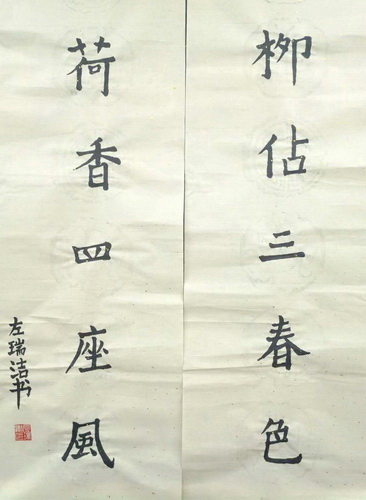 柳佔三春色
荷香四座風
左瑞洁书